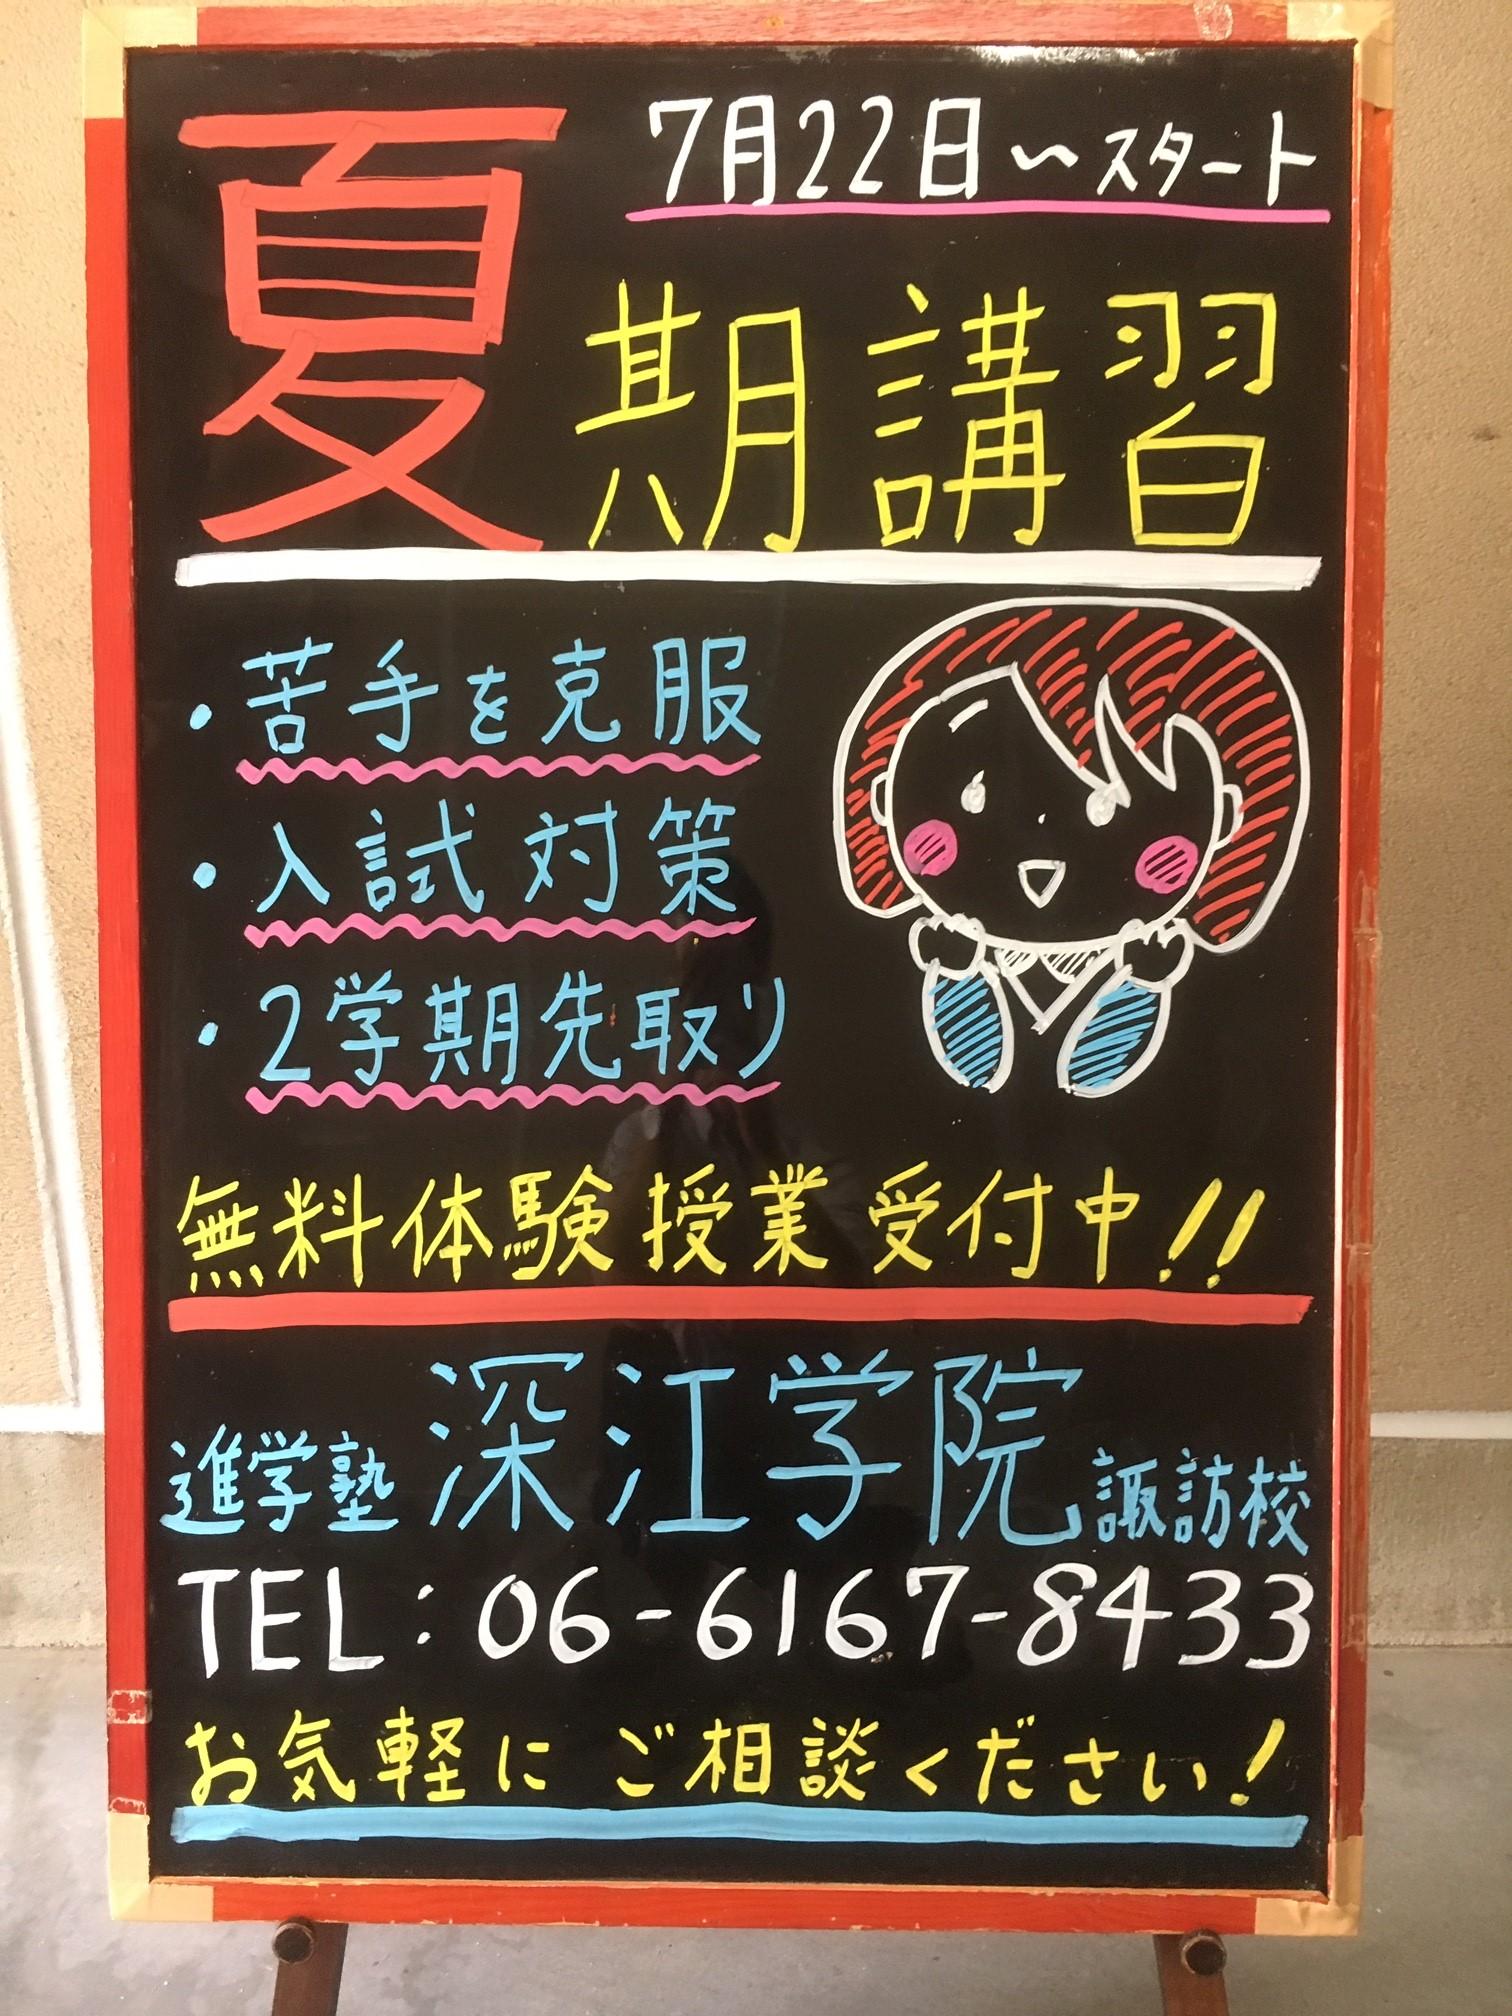 7月22日〜スタート
夏期講習
・苦手を克服
・入試対策
・2学期先取り
無料体験授業受付中!!
進学塾 深江学院 諏訪校
TEL:06-6167-8433
お気軽にご相談ください!